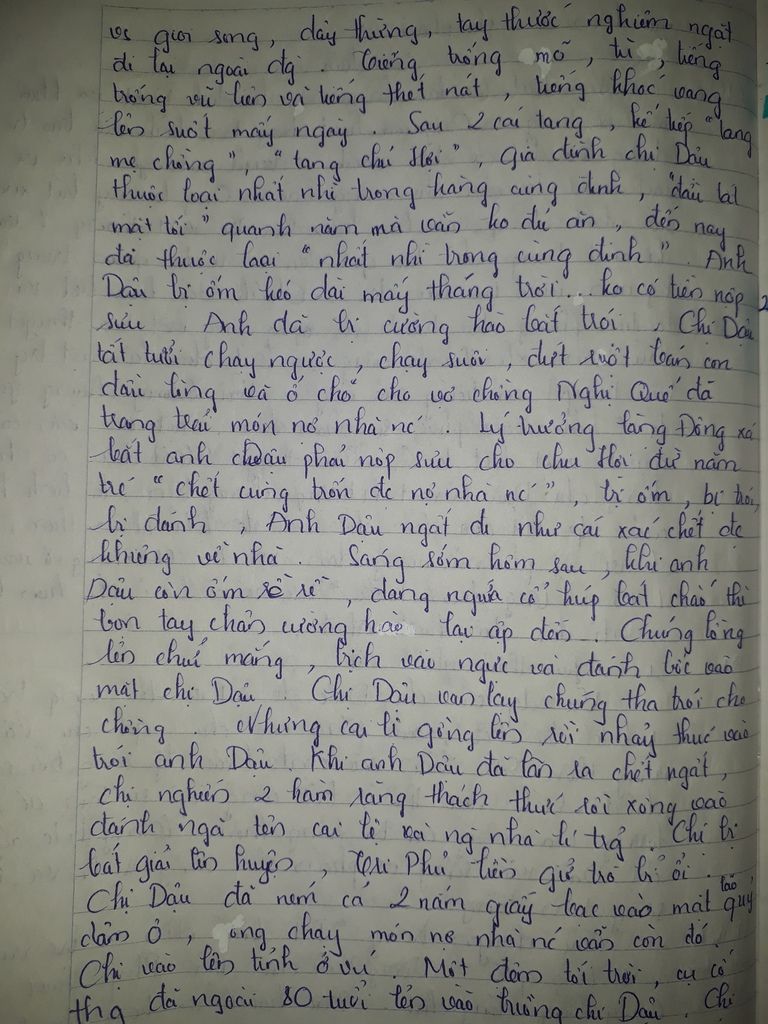 vs giơi song, dây thừng, tay thước nghiêm ngặt
đi lại ngoài đg. Tiếng trống mõ, tù, tiếng
trống
lên suốt mấy ngày. Sau 2 cái tang, kế tiếp "tang
mẹ chồng", "tang chú Hợi", gia đình chị Dậu
thuộc loại nhất nhì trong hàng cùng đinh, "đầu tắt
mặt tối" quanh năm mà vẫn ko đủ ăn, đến nay
đã thuộc loại "nhất nhì trong cùng đinh". Anh
Dậu bị ốm kéo dài mấy tháng trời... ko có tiền nộp
sưu Anh đã bị cường hào bắt trói, Chị Dậu
tất tưởi chạy ngược, chạy suôi, dứt ruột bán con
đầu lòng và ổ chó cho vợ chồng Nghị Quế đã
trang trải món nợ nhà nc. Lý trưởng làng Đông xá
bắt anh Dậu phải nộp sưu cho chú Hợi đừ năm
trc "chết cũng trốn đc nợ nhà nc", bị ốm, bị trói,
bị đánh, Anh Dậu ngất đi như cái xác chết đc
khiêng về nhà. Sáng sớm hôm sau, khi anh
Dậu còn ốm rề rề, đang ngửa cổ húp bát cháo thì
bọn tay chân cường hào lại ập đến. Chúng lồng
lên chửi mắng, bịch vào ngực và đánh bốc vào
mặt chị Dậu. Chị Dậu van lạy chúng tha trói cho
chồng. Nhưng cai lệ gồng lên rồi nhảy thục vào
trói anh Dậu. Khi anh Dậu đã lăn ra chết ngất,
chị nghiến 2 hàm răng thách thức rồi xông vào
đánh ngã tên cai lệ và ng nhà lí trg. Chị bị
bắt giải lên huyện, Tri Phủ liền giở trò bỉ ổi.
Chị Dậu đã ném cả 2 nắm giấy bạc vào mặt lão quỷ
dâm ô, ong chạy món nợ nhà nc vẫn còn đó.
Chị vào lên tỉnh ở vú. Một đêm tối trời, cụ cố
thg đã ngoài 80 tuổi lẻn vào buồng chị Dậu. Chị